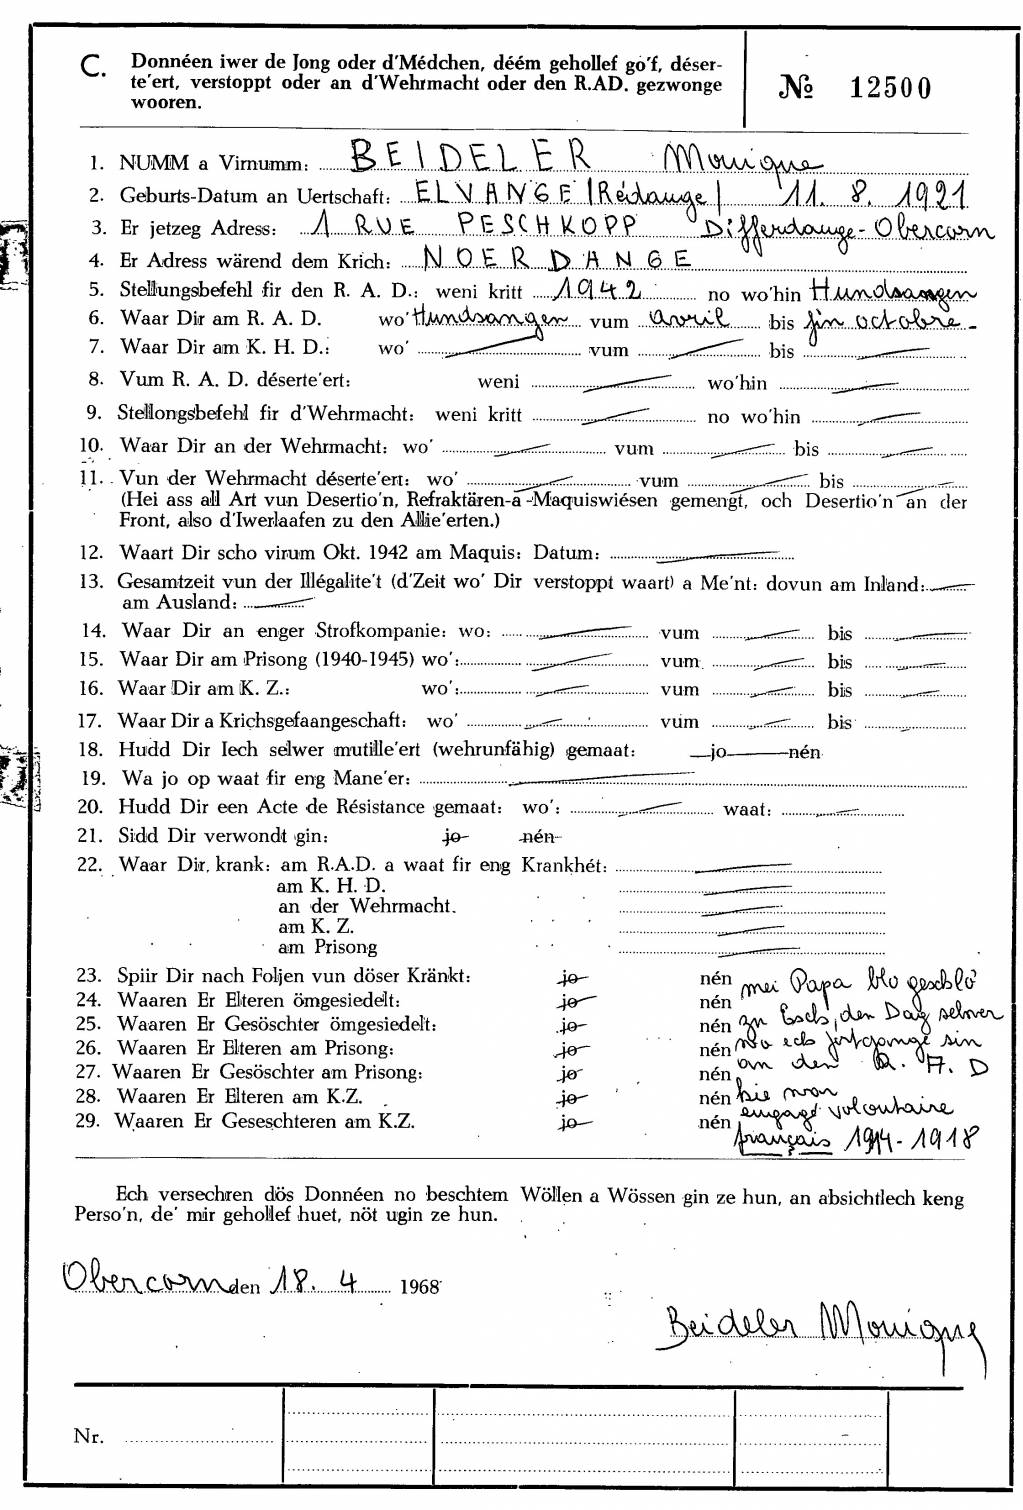 C. Donnéen iwer de Jong oder d'Médchen, déém gehollef go'f, déser-
te'ert, verstoppt oder an d'Wehrmacht oder den R.AD. gezwonge
wooren.
№ 12500
1. NUMM a Virnumm: BEIDELER Monique
2. Geburts-Datum an Uertschaft: ELVANGE (Rédange) 11. 8. 1921
3. Er jetzeg Adress: 1 RUE PESCHKOPP Differdange-Obercorn
4. Er Adress wärend dem Krich: NOERDANGE
5. Stellungsbefehl fir den R. A. D.: weni kritt 1942 no wo'hin Hundsangen
6. Waar Dir am R. A. D. wo' Hundsangen vum avril bis fin octobre -
7. Waar Dir am K. H. D.: wo' vum bis
8. Vum R. A. D. déserte'ert: weni wo'hin
9. Stellongsbefehl fir d'Wehrmacht: weni kritt no wo'hin
10. Waar Dir an der Wehrmacht: wo' vum bis
11. Vun der Wehrmacht déserte'ert: wo' vum bis
(Hei ass all Art vun Desertio'n, Refraktären-a -Maquiswiésen gemengt, och Desertio'n an der
Front, also d'Iwerlaafen zu den Allie'erten.)
12. Waart Dir scho virum Okt. 1942 am Maquis: Datum:
13. Gesamtzeit vun der Illégalite't (d'Zeit wo' Dir verstoppt waart) a Me'nt: dovun am Inland:
am Ausland:
14. Waar Dir an enger Strofkompanie: wo: vum bis
15. Waar Dir am Prisong (1940-1945) wo': vum bis
16. Waar Dir am K. Z.: wo': vum bis
17. Waar Dir a Krichsgefaangeschaft: wo' vum bis
18. Hudd Dir Iech selwer mutille'ert (wehrunfähig) gemaat: jo nén
19. Wa jo op waat fir eng Mane'er:
20. Hudd Dir een Acte de Résistance gemaat: wo': waat:
21. Sidd Dir verwondt gin: jo nén
22. Waar Dir krank: am R.A.D. a waat fir eng Krankhét:
am K. H. D.
an der Wehrmacht.
am K. Z.
am Prisong
23. Spiir Dir nach Foljen vun döser Kränkt: jo nén mei Papa blo geschlo
24. Waaren Er Elteren ömgesiedelt: jo nén
25. Waaren Er Gesöschter ömgesiedelt: jo nén zu Esch, den Dag selwer
26. Waaren Er Elteren am Prisong: jo nén wo ech fortgange sin
27. Waaren Er Gesöschter am Prisong: jo nén an den R. A. D
28. Waaren Er Elteren am K.Z. jo nén hie war
29. Waaren Er Geseschteren am K.Z. jo nén engagé volontaire
français 1914-1918
Ech versechren dös Donnéen no beschtem Wöllen a Wössen gin ze hun, an absichtlech keng
Perso'n, de' mir gehollef huet, nöt ugin ze hun.
Obercorn den 18. 4 1968
Beideler Monique
Nr.